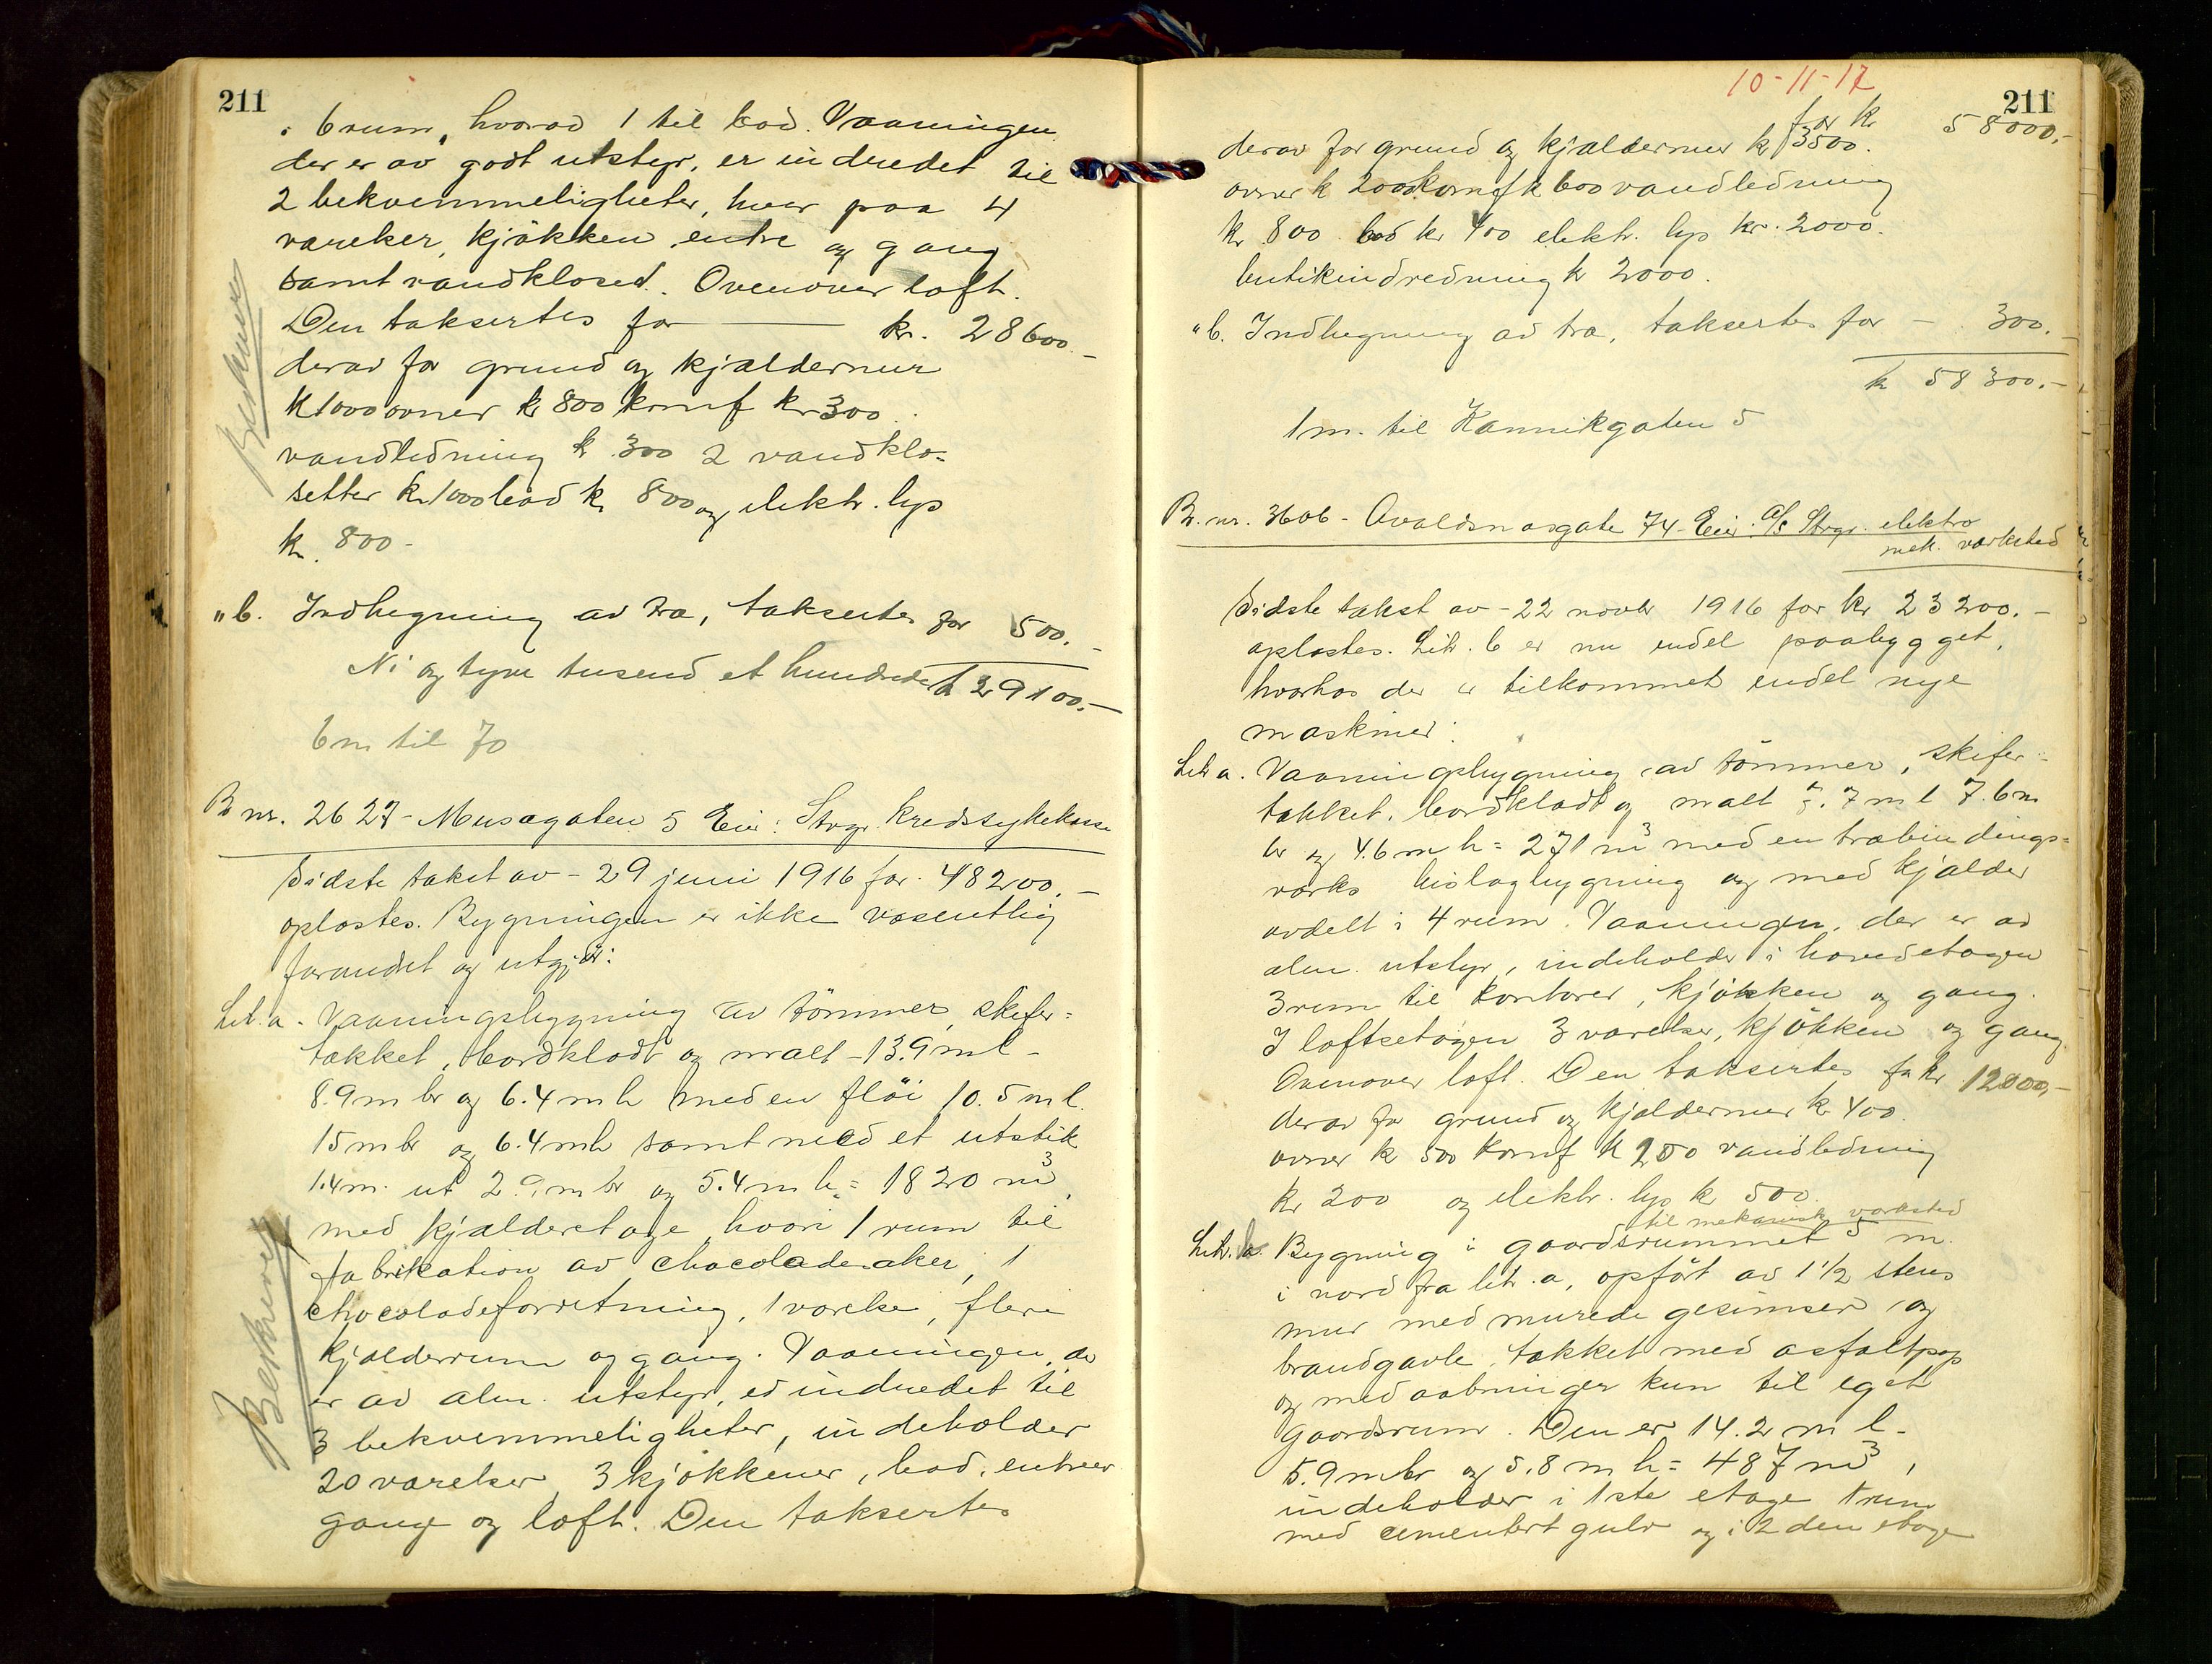 211
i 6 rum, hvorav 1 til bod. Vaaningen
der er av godt utstyr, er indredet til
2 bekvemmeligheter, hver paa 4
værelser, kjökken, entre og gang
samt vandkloset. Ovenover loft.
Den taksertes for kr. 28600.-
derav for grund og kjældermur
k 1000 ovner k 800 komf kr 300.
vandledning k 300 2 vandklo-
setter kr 1000 bad kr 800 og elektr. lys
kr. 800-
"b. Indhegning av træ, taksertes for 500.-
Ni og tyve tusend et hundrede k 29100.-
6 m til 70
B nr. 2627 - Musegaten 5 Eier: Stvgr. kredssykekasse
Sidste takst av - 29 juni 1916 for 48200.-
oplæstes. Bygningen er ikke væsentlig
forandret og utgjör:
Lit. a. Vaaningsbygning av tömmer, skifer-
tækket, bordklædt og malt - 13.9 m l -
8.9 m br og 6.4 m h med en flöi 10.5 m l.
15 m br og 6.4 m h samt med et utstik
1.4 m. ut 2.9 m br og 5.4 m h = 1820 m3,
med kjælderetage, hvori 1 rum til
fabrikation av chocoladesaker, 1
chocoladeforretning, 1 værelse, flere
kjælderrum og gang. Vaaningen, der
er av alm. utstyr, er indredet til
3 bekvemmeligheter, indeholder
20 værelser, 3 kjøkkener, bad, entreer
gange og loft. Den taksertes
Beskrevet
10-11-17
211
for kr 58000.-
derav for grund og kjældermur k 3500.
ovner k 2000 komf k 600 vandledning
kr 800 bad kr 400 elektr. lys kr. 2000.
butikindredning k 2000.
"b. Indhegning av træ, taksertes for - 300.-
k 58300.-
1 m. til Kannikgaten 5
B. nr. 3606 - Avaldsnæsgate 74 - Eier: A/S Stvgr. elektro
mek. værksted
Sidste takst av - 22 novbr 1916 for kr 23200.-
oplæstes. Lit. b er nu endel paabygget,
hvorhos der er tilkommet endel nye
maskiner:
Lit a. Vaaningsbygning av tömmer, skifer-
tækket, bordklædt og malt 7.7 m l 7.6 m
br og 4.6 m h = 271 m3 med en træbindings-
verks bislagbygning og med kjælder
avdelt i 4 rum. Vaaningen, der er av
alm. utstyr, indeholder i hovedetagen
3 rum til kontorer, kjökken og gang.
I loftsetagen 3 værelser, kjökken og gang.
Ovenover loft. Den taksertes for kr 12000.-
derav for grund og kjældermur kr 400.
ovner k 500 komf k 250 vandledning
kr 200 og elektr. lys k 500.
til mekanisk værksted
Lit. b. Bygning i gaardsrummet 5 m.
i nord fra litr. a, opfört av 1 1/2 stens
mur med murede gesimser og
brandgavle, tækket med asfaltpap
og med aabninger kun til eget
gaardsrum. Den er 14.2 m l -
5.9 m br og 5.8 m h = 487 m3,
indeholder i 1ste etage 1 rum
med cementert gulv og i 2den etage